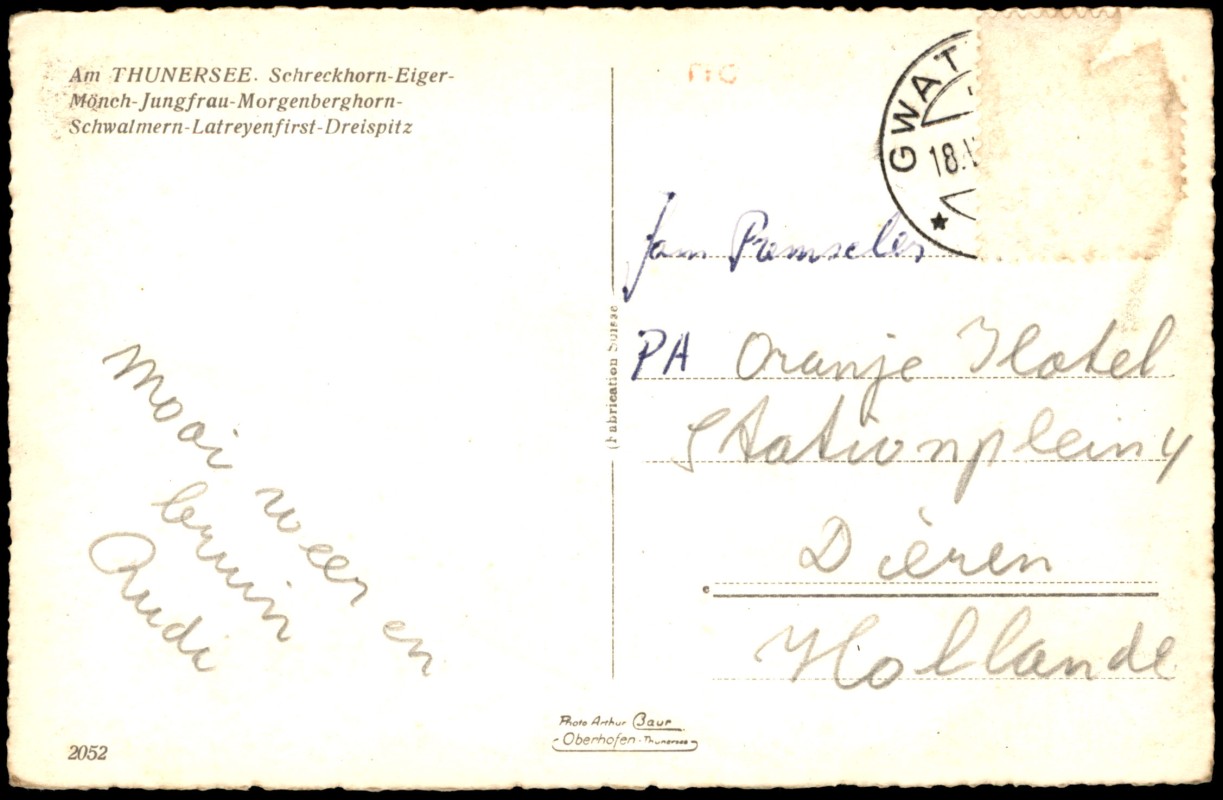 Am THUNERSEE. Schreckhorn-Eiger-
Mönch-Jungfrau-Morgenberghorn-
Schwalmern-Latreyenfirst-Dreispitz
GWAT
18.
Jan Pemseler
PA Oranje Hotel
Stationplein 4
Diëren
Hollande
Mooi weer en
bruin
Rudi
(Fabrication Suisse
Photo Arthur Baur
Oberhofen-Thunersee
2052